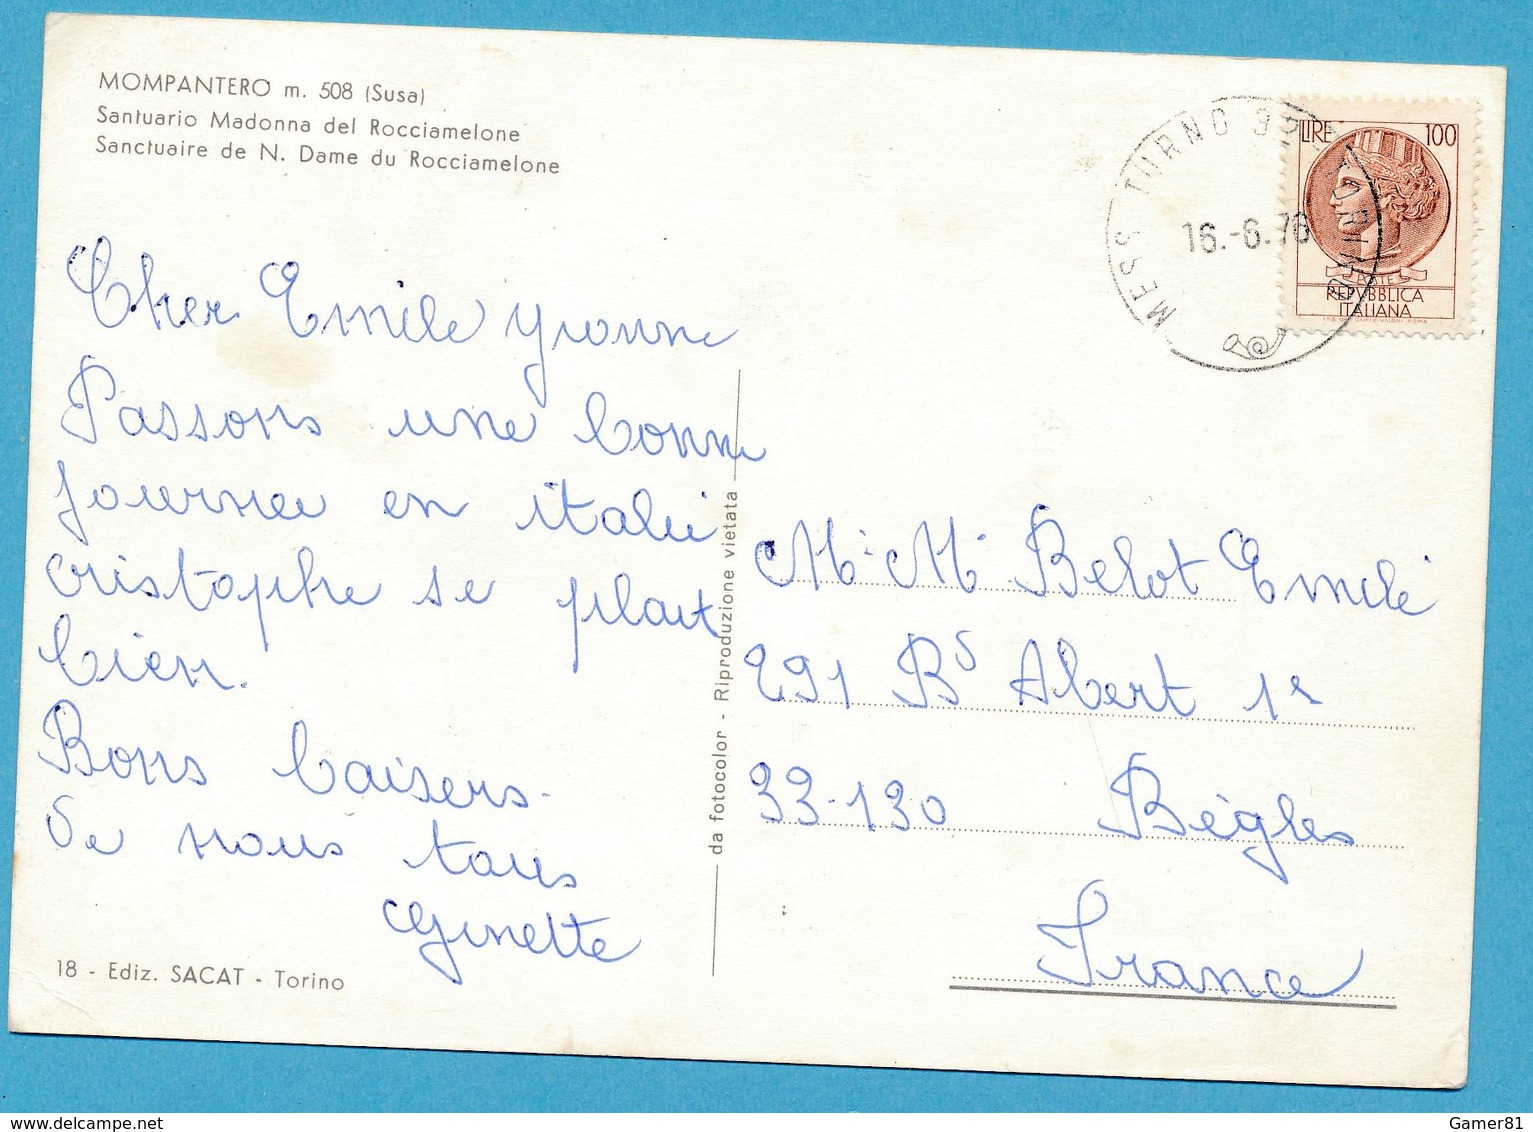 MOMPANTERO m. 508 (Susa)
Santuario Madonna del Rocciamelone
Sanctuaire de N. Dame du Rocciamelone
Cher Emile yvonne
Passons une bonne
journee en italie
cristophe se plait
bien.
Bons baisers.
de nous tous
Ginette
18 - Ediz. SACAT - Torino
da fotocolor - Riproduzione vietata
MESS TURNO TORINO
16.-6.76
LIRE 100
POSTE
REPVBBLICA
ITALIANA
M. M. Belot Emile
291 Bd Albert 1er
33-130 Bègles
France
Gamer81
delcampe.net